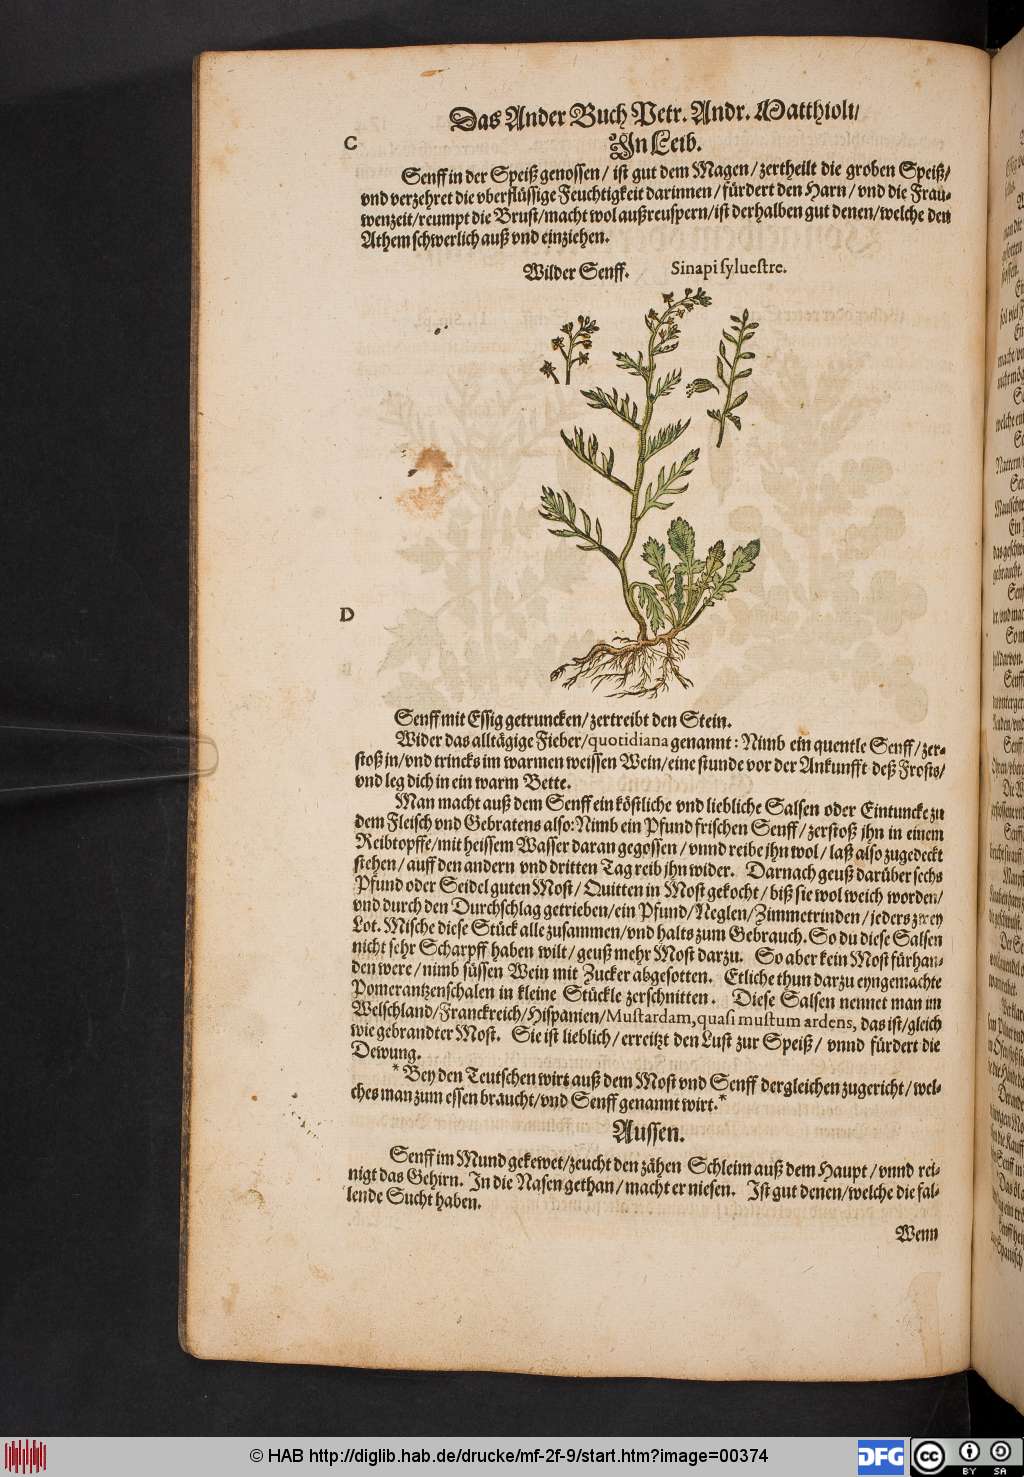 Das Ander Buch Petr. Andr. Matthioli/
C
In Leib.
Senff in der Speiß genossen / ist gut dem Magen / zertheilt die groben Speiß/
vnd verzehret die vberflüssige Feuchtigkeit darinnen / fürdert den Harn / vnd die Frau-
wenzeit/reumpt die Brust/macht wol außreuspern/ist derhalben gut denen/welche den
Athem schwerlich auß vnd einziehen.
Wilder Senff. Sinapi syluestre.
D
Senff mit Essig getruncken/zertreibt den Stein.
Wider das alltägige Fieber/quotidiana genannt: Nimb ein quentle Senff/zer-
stoß jn/vnd trincks im warmen weissen Wein/eine stunde vor der Ankunfft deß Frosts/
vnd leg dich in ein warm Bette.
Man macht auß dem Senff ein köstliche vnd liebliche Salsen oder Eintuncke zu
dem Fleisch vnd Gebratens also: Nimb ein Pfund frischen Senff/zerstoß jhn in einem
Reibtopffe/mit heissem Wasser daran gegossen / vnnd reibe jhn wol / laß also zugedeckt
stehen/auff den andern vnd dritten Tag reib jhn wider. Darnach geuß darüber sechs
Pfund oder Seidel guten Most/Quitten in Most gekocht / biß sie wol weich worden/
vnd durch den Durchschlag getrieben/ein Pfund/Neglen/Zimmetrinden/jeders zwey
Lot. Mische diese Stück alle zusammen/vnd halts zum Gebrauch. So du diese Salsen
nicht sehr Scharpff haben wilt/geuß mehr Most darzu. So aber kein Most fürhan-
den were/nimb süssen Wein mit Zucker abgesotten. Etliche thun darzu eyngemachte
Pomerantzenschalen in kleine Stückle zerschnitten. Diese Salsen nennet man im
Welschland/Franckreich/Hispanien/Mustardam, quasi mustum ardens, das ist/gleich
wie gebrandter Most. Sie ist lieblich/erreitzt den Lust zur Speiß / vnnd fürdert die
Dewung.
* Bey den Teutschen wirt auß dem Most vnd Senff dergleichen zugericht/wel-
ches man zum essen braucht/vnd Senff genannt wirt.*
Aussen.
Senff im Mund gekewet/zeucht den zähen Schleim auß dem Haupt/vnnd rei-
nigt das Gehirn. In die Nasen gethan/macht er niesen. Ist gut denen/welche die fal-
lende Sucht haben.
Wenn
© HAB http://diglib.hab.de/drucke/mf-2f-9/start.htm?image=00374
DFG
cc
BY SA